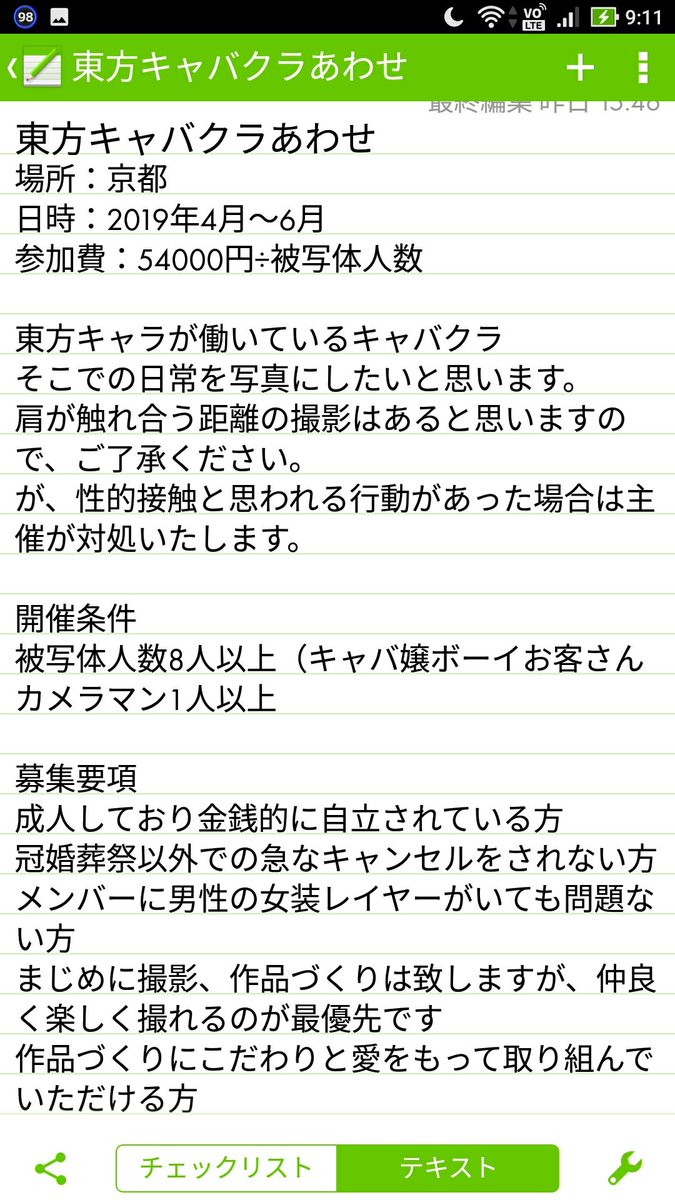 98
VO LTE
9:11
東方キャバクラあわせ
最終編集 昨日 15:46
東方キャバクラあわせ
場所：京都
日時：2019年4月〜6月
参加費：54000円÷被写体人数
東方キャラが働いているキャバクラ
そこでの日常を写真にしたいと思います。
肩が触れ合う距離の撮影はあると思いますの
で、ご了承ください。
が、性的接触と思われる行動があった場合は主
催が対処いたします。
開催条件
被写体人数8人以上（キャバ嬢ボーイお客さん
カメラマン1人以上
募集要項
成人しており金銭的に自立されている方
冠婚葬祭以外での急なキャンセルをされない方
メンバーに男性の女装レイヤーがいても問題な
い方
まじめに撮影、作品づくりは致しますが、仲良
く楽しく撮れるのが最優先です
作品づくりにこだわりと愛をもって取り組んで
いただける方
チェックリスト
テキスト